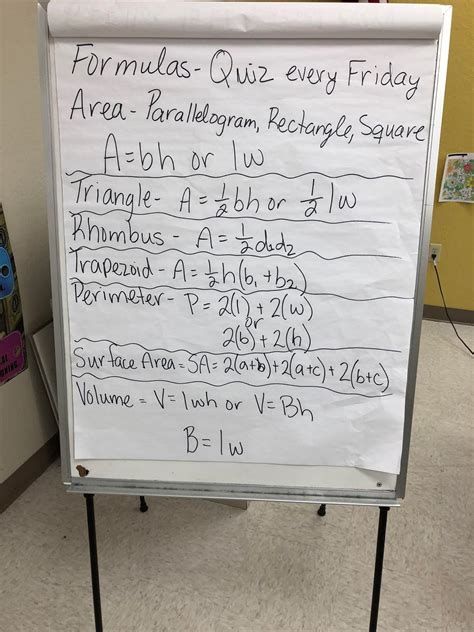 Formulas - Quiz every Friday
Area - Parallelogram, Rectangle, Square
A=bh or lw
Triangle - A = 1/2 bh or 1/2 lw
Rhombus - A = 1/2 d₁d₂
Trapezoid - A = 1/2 h(b₁+b₂)
Perimeter - P = 2(l) + 2(w)
or
2(b) + 2(h)
Surface Area = SA = 2(a+b)+2(a+c)+2(b+c)
Volume = V = lwh or V=Bh
B=lw